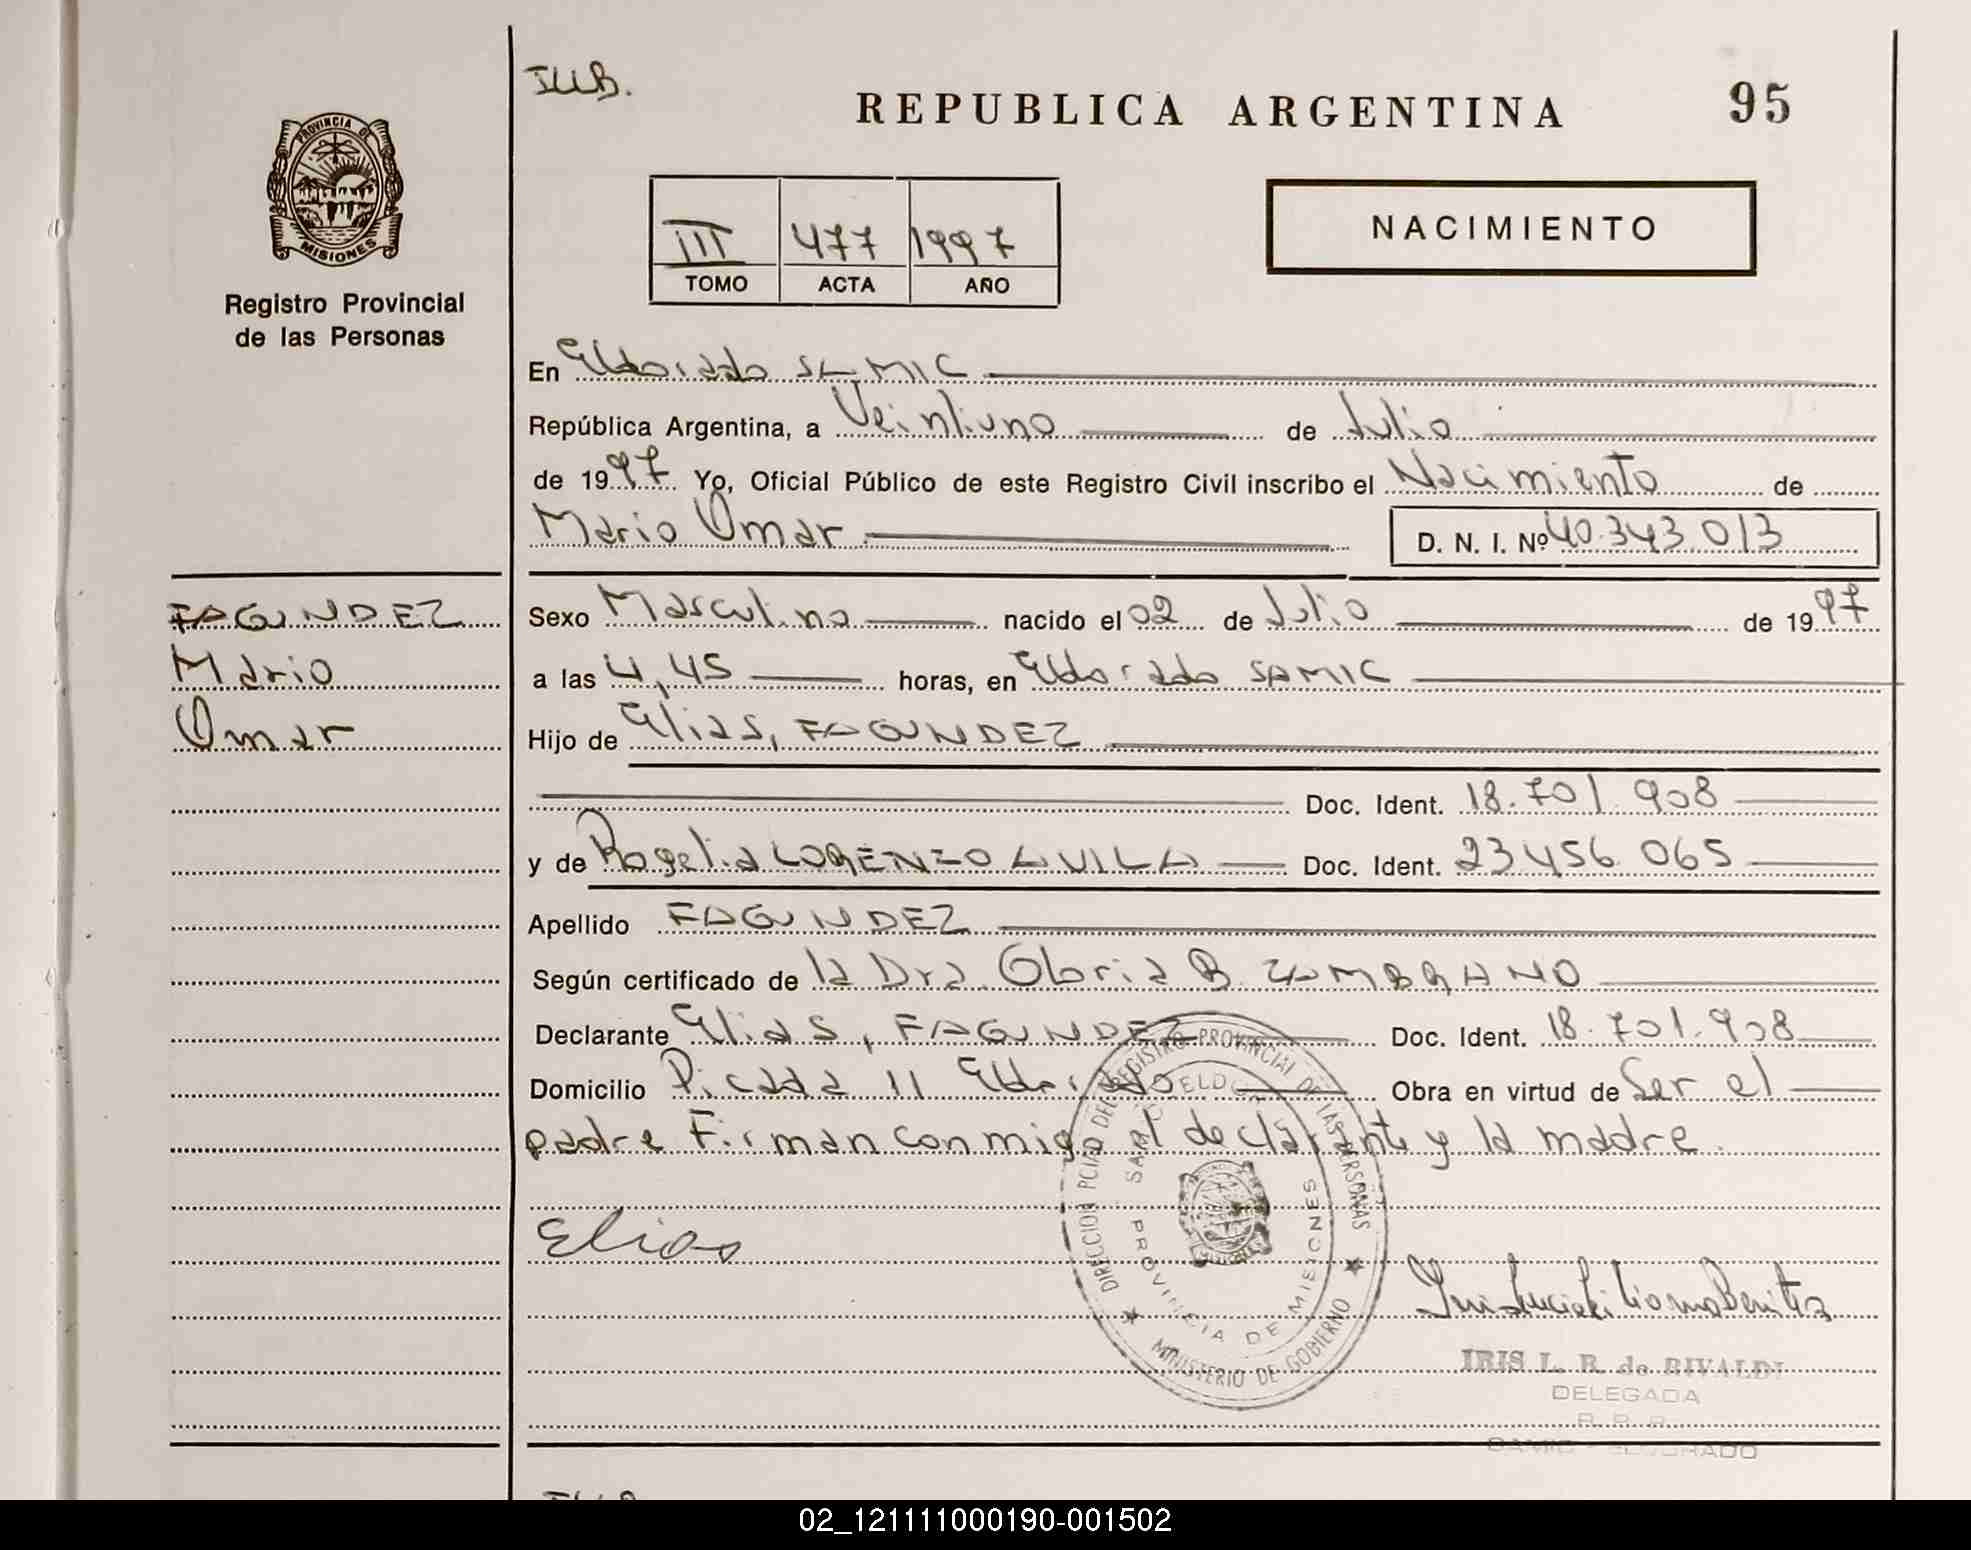 ILLB.
REPUBLICA ARGENTINA
95
PROVINCIA DE
MISIONES
Registro Provincial
de las Personas
III 477 1997
TOMO ACTA AÑO
NACIMIENTO
En Eldorado SAMIC
República Argentina, a Veintiuno de Julio
de 1997 Yo, Oficial Público de este Registro Civil inscribo el Nacimiento de
Mario Omar D. N. I. Nº 40.343.013
FAGUNDEZ
Mario
Omar
Sexo Masculino nacido el 02 de Julio de 1997
a las 4,45 horas, en Eldorado SAMIC
Hijo de Elias, FAGUNDEZ
Doc. Ident. 18.701.908
y de Rogelia LORENZO AVILA Doc. Ident. 23456.065
Apellido FAGUNDEZ
Según certificado de la Dra. Gloria B. ZAMBRANO
Declarante Elias, FAGUNDEZ Doc. Ident. 18.701.908
Domicilio Picada 11 Eldorado Obra en virtud de Ser el
padre Firman conmigo el declarante y la madre.
DIRECCION PCIAL DEL REGISTRO PROVINCIAL DE LAS PERSONAS
MINISTERIO DE GOBIERNO
PROVINCIA DE MISIONES
Elias
IRIS L. B. de RIVALDI
DELEGADA
R. P. P.
SAMIC - ELDORADO
02_121111000190-001502